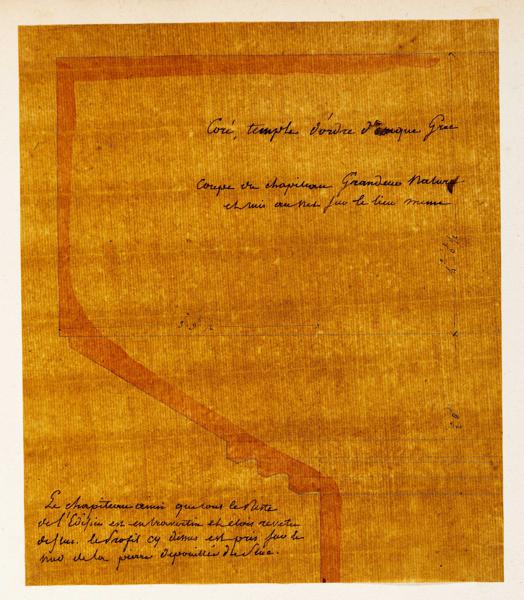 Coré, temple d'ordre dorique Grec
Coupe du chapiteau Grandeur Nature
et mis au Net sur le lieu meme
Le chapiteau ainsi que tout le Reste
de l'Edifice est en travertin et etois revetu
de Stuc. le Profil cy dessus est pris sur le
nud de la pierre depouillée du Stuc.